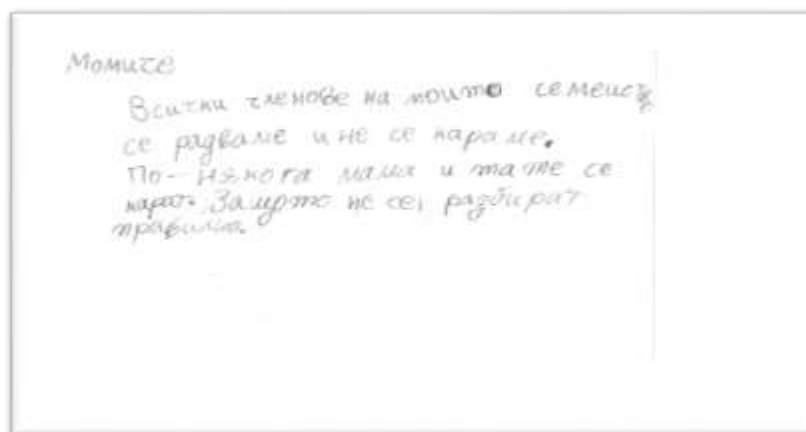 Момиче
Всички членове на моито семейств
се радваме и не се караме.
По-някога мама и тате се
карат. Защото не се разбират
правилно.